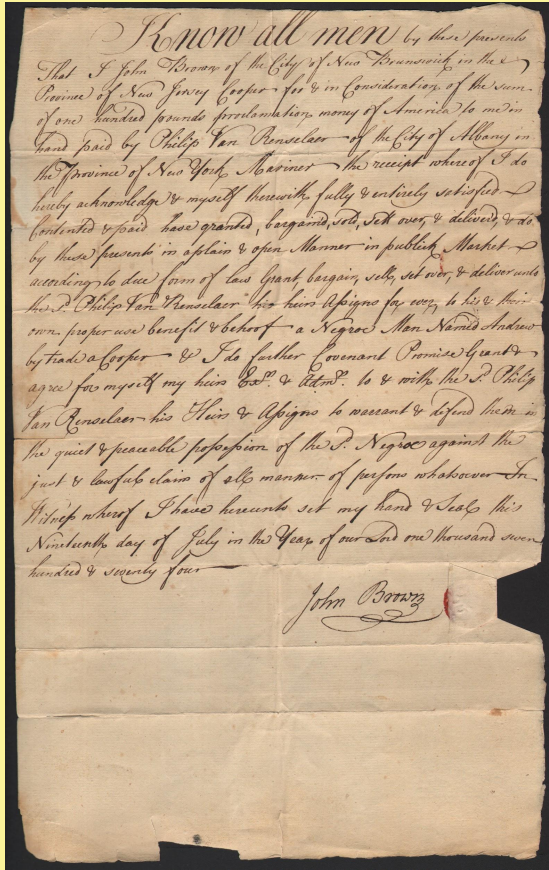 Know all men by these presents
That I John Brown of the City of New Brunswick in the
Province of New Jersey Cooper for & in Consideration of the sum
of one hundred pounds proclamation money of America to me in
hand paid by Philip Van Renselaer of the City of Albany in
the Province of New York Mariner the receipt whereof I do
hereby acknowledge & myself therewith fully & entirely satisfied
Contented & paid have granted, bargaind, sold, sett over, & deliverd, & do
by these presents in a plain & open Manner in publick Market
according to due form of law Grant, bargain, sell, set over, & deliver unto
the Sd. Philip Van Renselaer his heirs Assigns for ever to his & their
own proper use benefit & behoof a Negroe Man Named Andrew
by trade a Cooper & I do further Covenant Promise Grant &
agree for myself my heirs Exrs. & Admrs. to & with the Sd. Philip
Van Renselaer his Heirs & Assigns to warrant & defend them in
the quiet & peaceable possession of the Sd. Negroe against the
just & lawfull claim of all manner of persons whatsoever In
Witness wherof I have hereunto set my hand & Seal this
Nineteenth day of July in the Year of our Lord one thousand seven
hundred & seventy four
John Brown